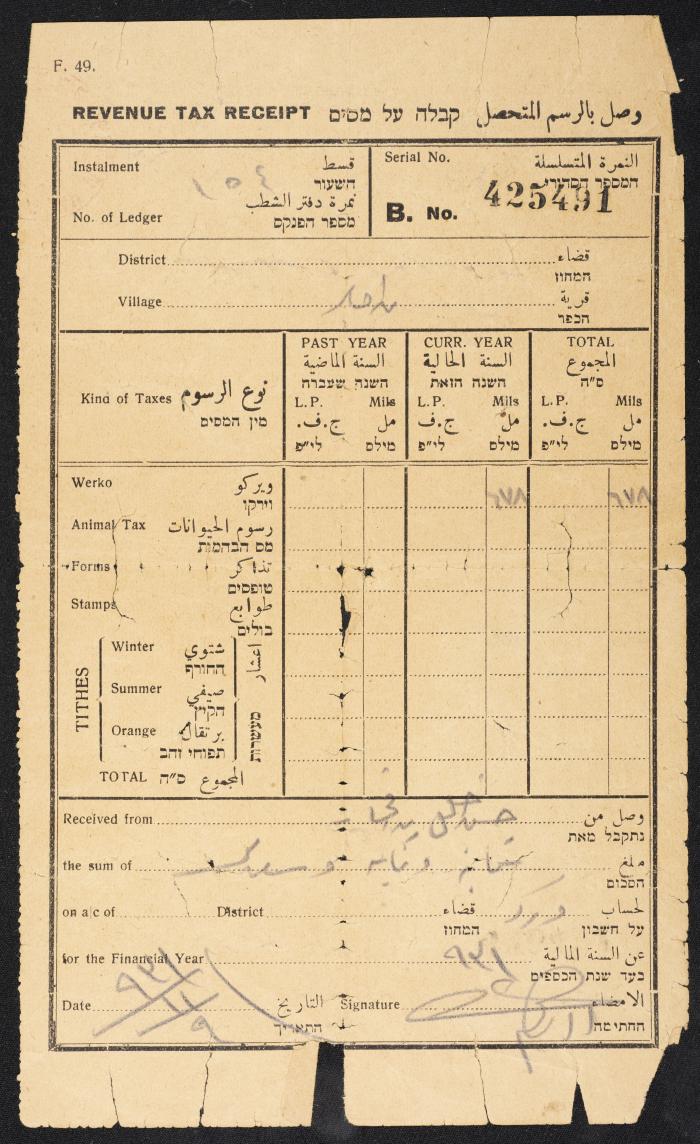 F. 49.
REVENUE TAX RECEIPT קבלה על מסים وصل بالرسم المتحصل
Instalment قسط
השעור
No. of Ledger نمرة دفتر الشطب
מספר הפנקס
١٥٤
Serial No. النمرة المتسلسلة
המספר הסדורי
B. No. 425491
District قضاء
המחוז
Village قرية
הכפר
Kind of Taxes نوع الرسوم
מין המסים
PAST YEAR
السنة الماضية
השנה שעברה
L.P. Mils
ج.ف. مل
לי"פ מילס
CURR. YEAR
السنة الحالية
השנה הזאת
L.P. Mils
ج.ف. مل
לי"פ מילס
TOTAL
المجموع
ס"ה
L.P. Mils
ج.ف. مل
לי"פ מילס
Werko ويركو
וירקו
Animal Tax رسوم الحيوانات
מס הבהמות
Forms تذاكر
טופסים
Stamps طوابع
בולים
TITHES اعشار מעשרות
Winter شتوي
החורף
Summer صيفي
הקיץ
Orange برتقال
תפוחי זהב
TOTAL ס"ה المجموع
Received from وصل من
נתקבל מאת
the sum of مبلغ
הסכום
on a/c of District قضاء لحساب
המחוז על חשבון
for the Financial Year ٩٣١ عن السنة المالية
בעד שנת הכספים
Date التاريخ Signature الامضاء
התאריך החתימה